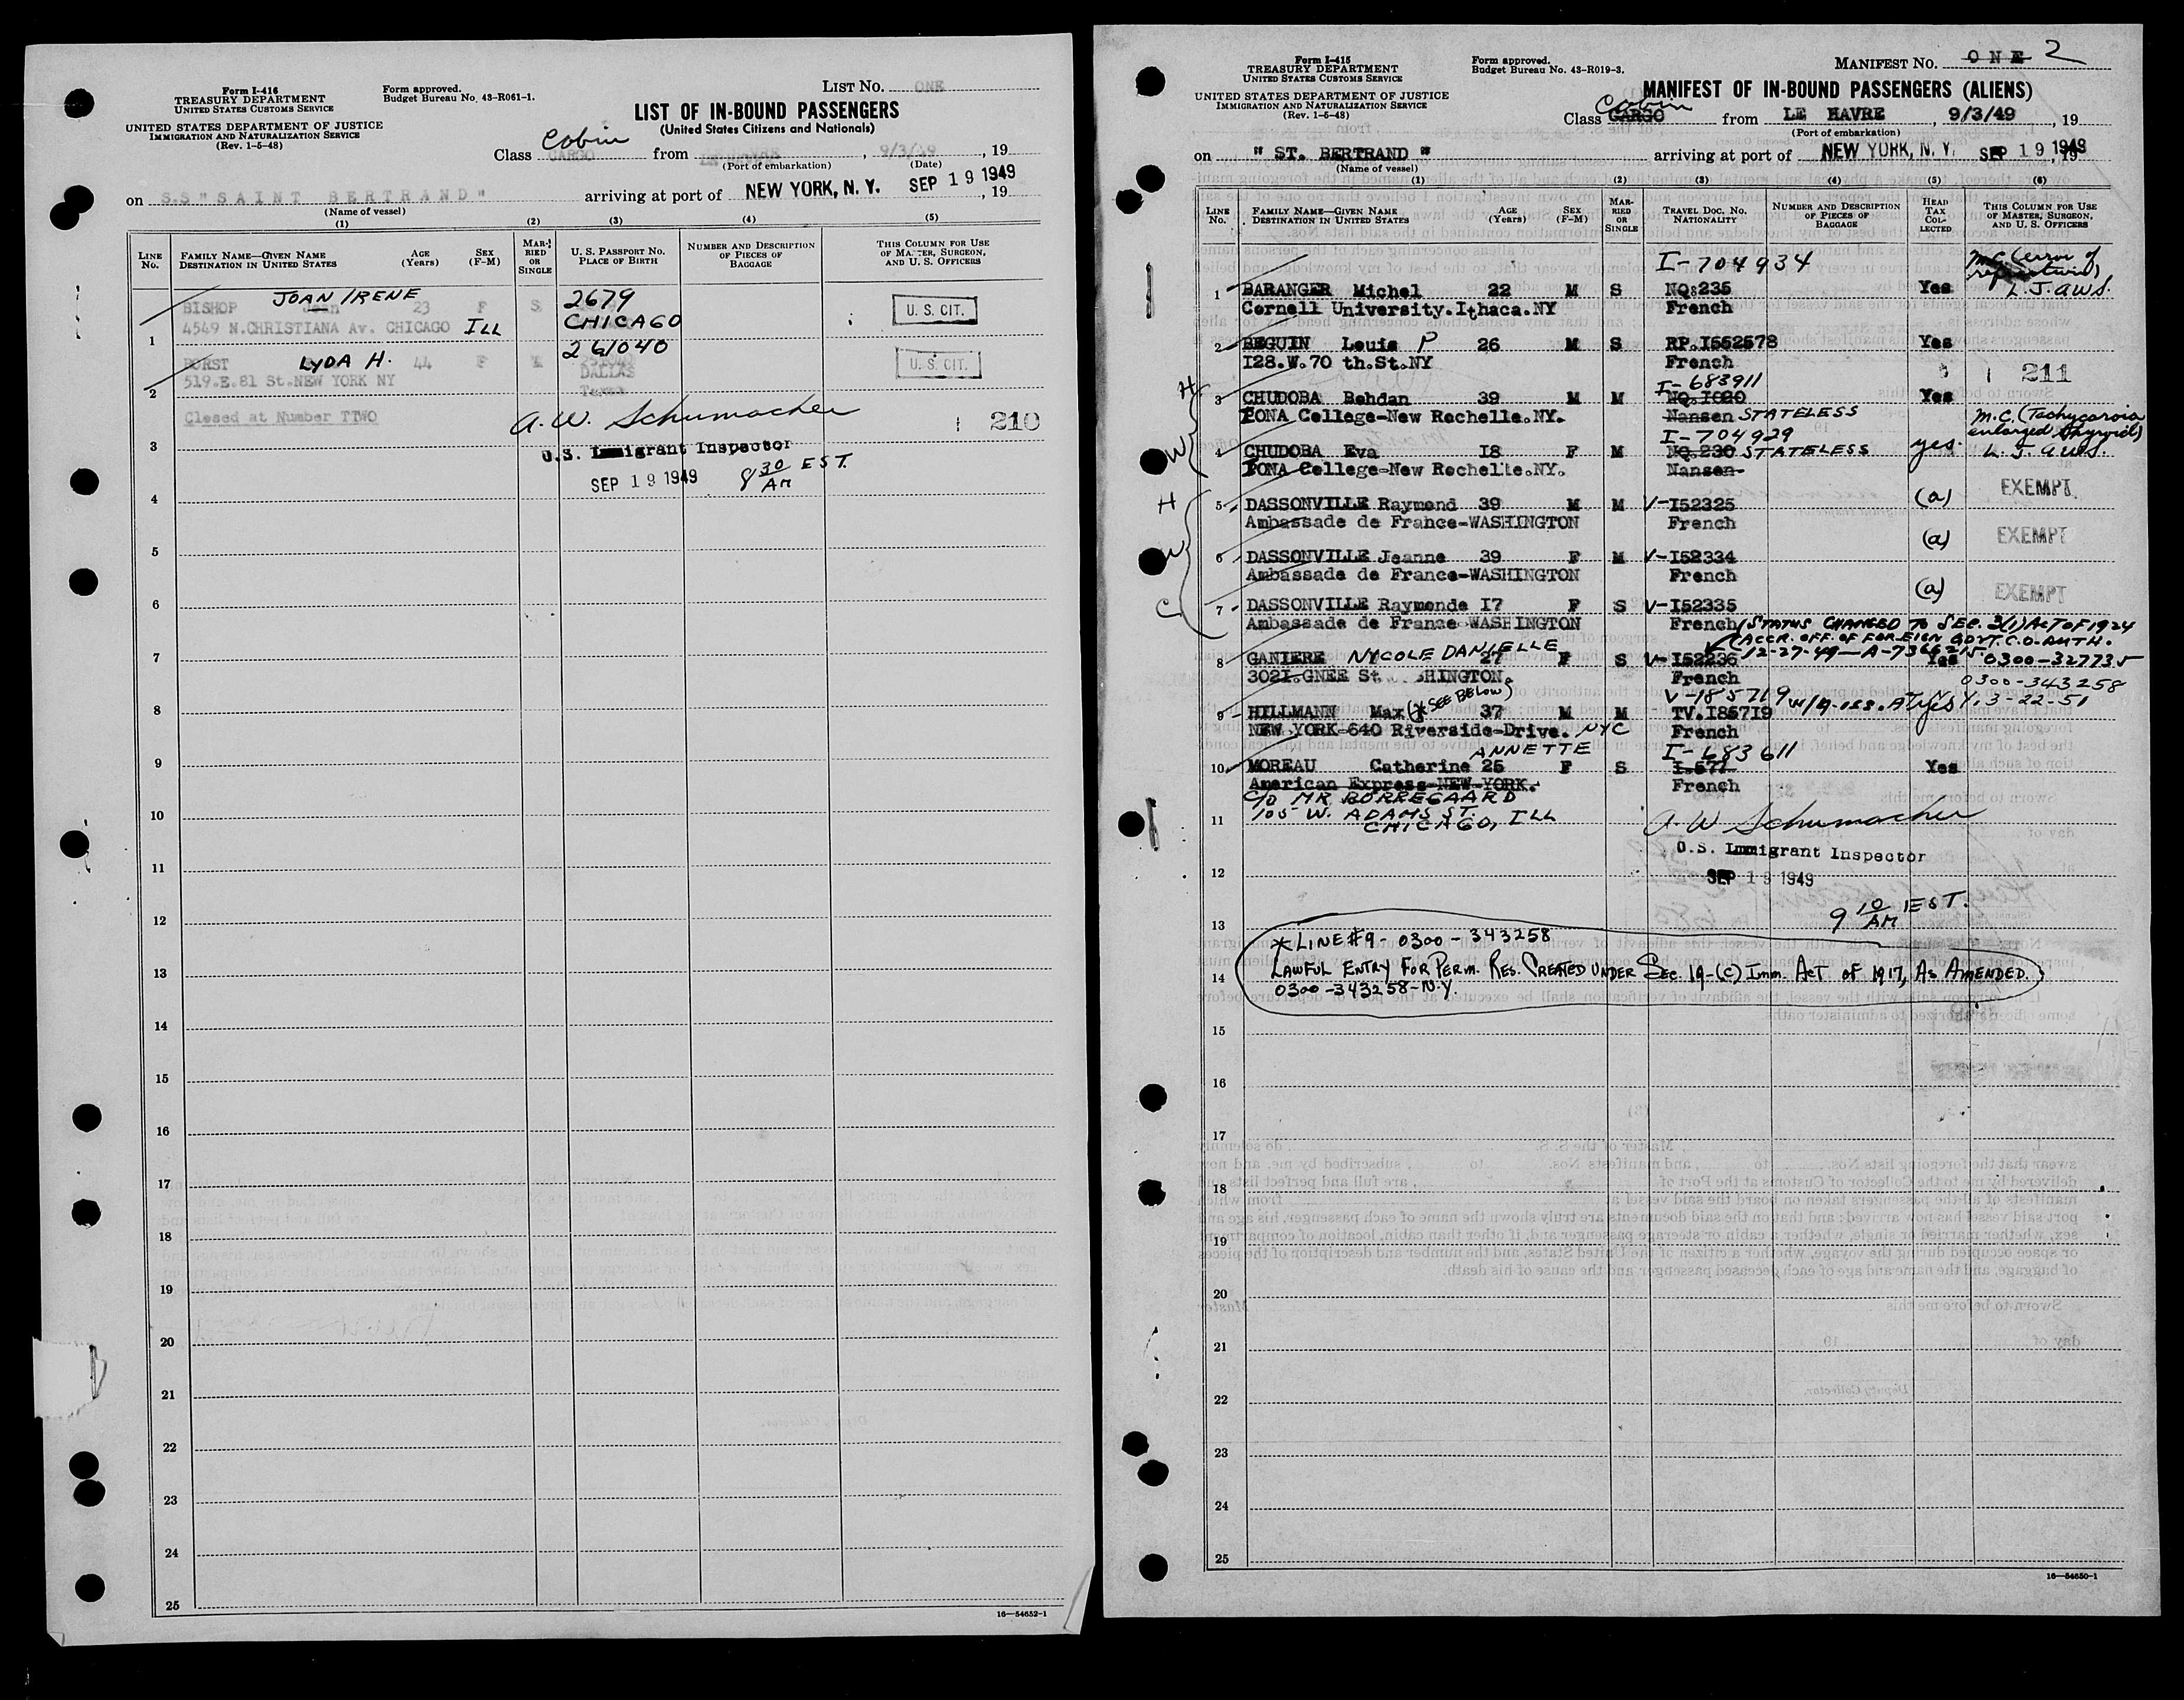 Form I-416
TREASURY DEPARTMENT
UNITED STATES CUSTOMS SERVICE
UNITED STATES DEPARTMENT OF JUSTICE
IMMIGRATION AND NATURALIZATION SERVICE
(Rev. 1-5-48)
Form approved.
Budget Bureau No. 43-R061-1.
LIST NO. ONE
LIST OF IN-BOUND PASSENGERS
(United States Citizens and Nationals)
Class CARGO Cabin from , 9/3/49 , 19
(Port of embarkation) (Date)
on S.S "SAINT BERTRAND" arriving at port of NEW YORK, N. Y. SEP 19 1949 , 19
(Name of vessel)
(1) (2) (3) (4) (5)
LINE No. FAMILY NAME—GIVEN NAME DESTINATION IN UNITED STATES AGE (Years) SEX (F-M) MARRIED OR SINGLE U. S. PASSPORT NO. PLACE OF BIRTH NUMBER AND DESCRIPTION OF PIECES OF BAGGAGE THIS COLUMN FOR USE OF MASTER, SURGEON, AND U. S. OFFICERS
JOAN IRENE 2679
BISHOP Jean 23 F S U. S. CIT.
4549 N.CHRISTIANA Av. CHICAGO ILL CHICAGO
1
261040
LYDA H. 44 F U. S. CIT.
519.E.81 St.NEW YORK NY DALLAS
2 Texas
Closed at Number TTWO A. W. Schumacher 210
3 U.S. Immigrant Inspector
SEP 19 1949 8 30 AM EST.
4
5
6
7
8
9
10
11
12
13
14
15
16
17
18
19
20
21
22
23
24
25
16—54652-1
Form I-415
TREASURY DEPARTMENT
UNITED STATES CUSTOMS SERVICE
UNITED STATES DEPARTMENT OF JUSTICE
IMMIGRATION AND NATURALIZATION SERVICE
(Rev. 1-5-48)
Form approved.
Budget Bureau No. 43-R019-3.
MANIFEST NO. ONE 2
MANIFEST OF IN-BOUND PASSENGERS (ALIENS)
Class CARGO Cabin from LE HAVRE , 9/3/49 , 19
(Port of embarkation)
on " ST. BERTRAND " arriving at port of NEW YORK, N. Y. SEP 19 1949 , 19
(Name of vessel)
(1) (2) (3) (4) (5) (6)
LINE No. FAMILY NAME—GIVEN NAME DESTINATION IN UNITED STATES AGE (Years) SEX (F-M) MARRIED OR SINGLE TRAVEL DOC. NO. NATIONALITY NUMBER AND DESCRIPTION OF PIECES OF BAGGAGE HEAD TAX COLLECTED THIS COLUMN FOR USE OF MASTER, SURGEON, AND U. S. OFFICERS
I-704934 M.C. (error of
1 BARANGER Michel 22 M S NQ:235 Yes L. J. aws.
Cornell University.Ithaca.NY French
2 BEGUIN Louis P 26 M S RP.I552578 Yes
I28.W.70 th.St.NY French 211
H I-683911
3 CHUDOBA Bohdan 39 M M NQ.I020 Yes
IONA College-New Rochelle.NY. Nansen STATELESS M.C. (Tachycardia
I-704929 enlarged thyroid)
W 4 CHUDOBA Eva I8 F M NQ.230 STATELESS yes. L. J. aws.
IONA College-New Rochelle.NY. Nansen
H 5 DASSONVILLE Raymond 39 M M V-I52325 (a) EXEMPT
Ambassade de France-WASHINGTON French
W 6 DASSONVILLE Jeanne 39 F M V-I52334 (a) EXEMPT
Ambassade de France-WASHINGTON French
C 7 DASSONVILLE Raymonde I7 F S V-I52335 (a) EXEMPT
Ambassade de France-WASHINGTON French (STATUS CHANGED TO SEC. 3(1) ACT OF 1924
7 ACCR. OFF. OF FOREIGN GOVT. C.O. AUTH.
12-27-49—A-7366215
8 GANIERE NYCOLE DANIELLE 27 F S V-I52236 Yes 0300-327735
302I.GNEE St. HINGTON. French 0300-343258
8 (* SEE BELOW) V-185719 w/4-155. A.T. N.Y. 3-22-51
9 HILLMANN Max 37 M M TV.I85719 Yes
NEW.YORK-640 Riverside-Drive. NYC French
9 ANNETTE I-683611
10 MOREAU Catherine 25 F S I.577 Yes
American Express-NEW-YORK. French
10 C/O MR BORREGAARD
105 W. ADAMS ST.
11 CHICAGO, ILL A. W Schumacher
U.S. Immigrant Inspector
12 SEP 19 1949
9 10 AM EST.
13
* LINE #9 - 0300 - 343258
14 LAWFUL ENTRY FOR PERM. RES. CREATED UNDER SEC. 19-(C) IMM. ACT OF 1917, AS AMENDED.
0300-343258-N.Y.
15
16
17
18
19
20
21
22
23
24
25
16—54650-1